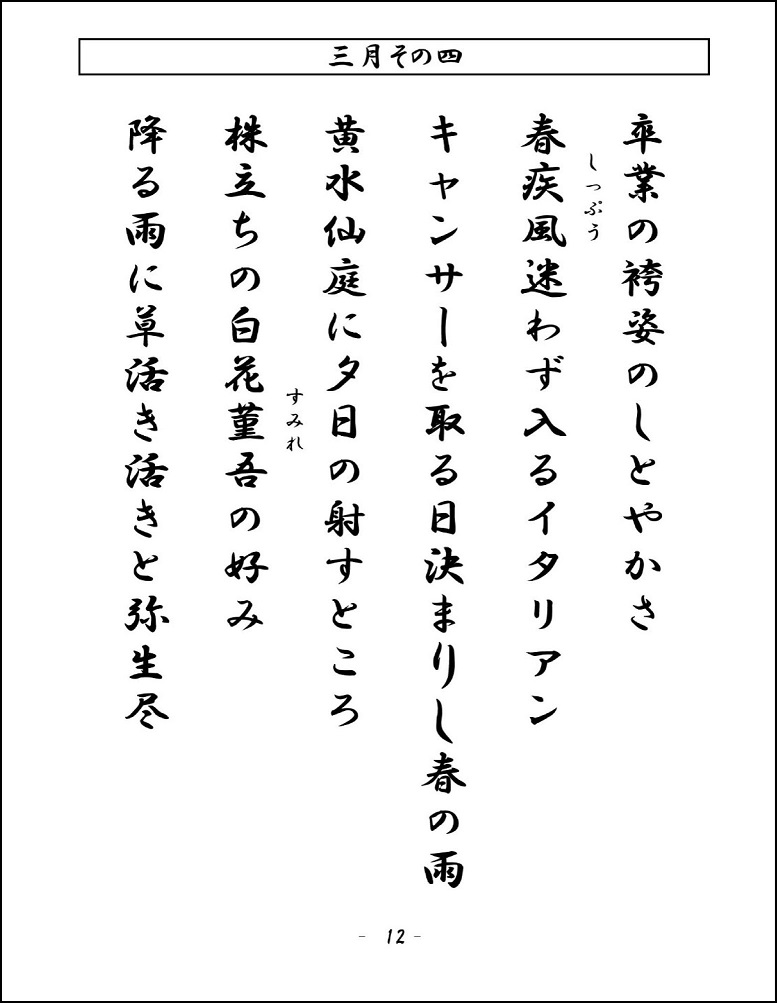 三月その四
卒業の袴姿のしとやかさ
しっぷう
春疾風迷わず入るイタリアン
キャンサーを取る日決まりし春の雨
黄水仙庭に夕日の射すところ
すみれ
株立ちの白花菫吾の好み
降る雨に草活き活きと弥生尽
- 12 -